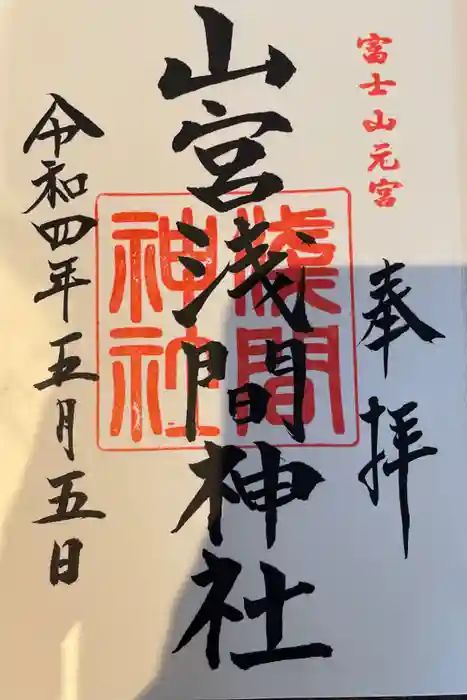 富士山元宮
奉拝
山宮浅間神社
浅間
神社
令和四年五月五日